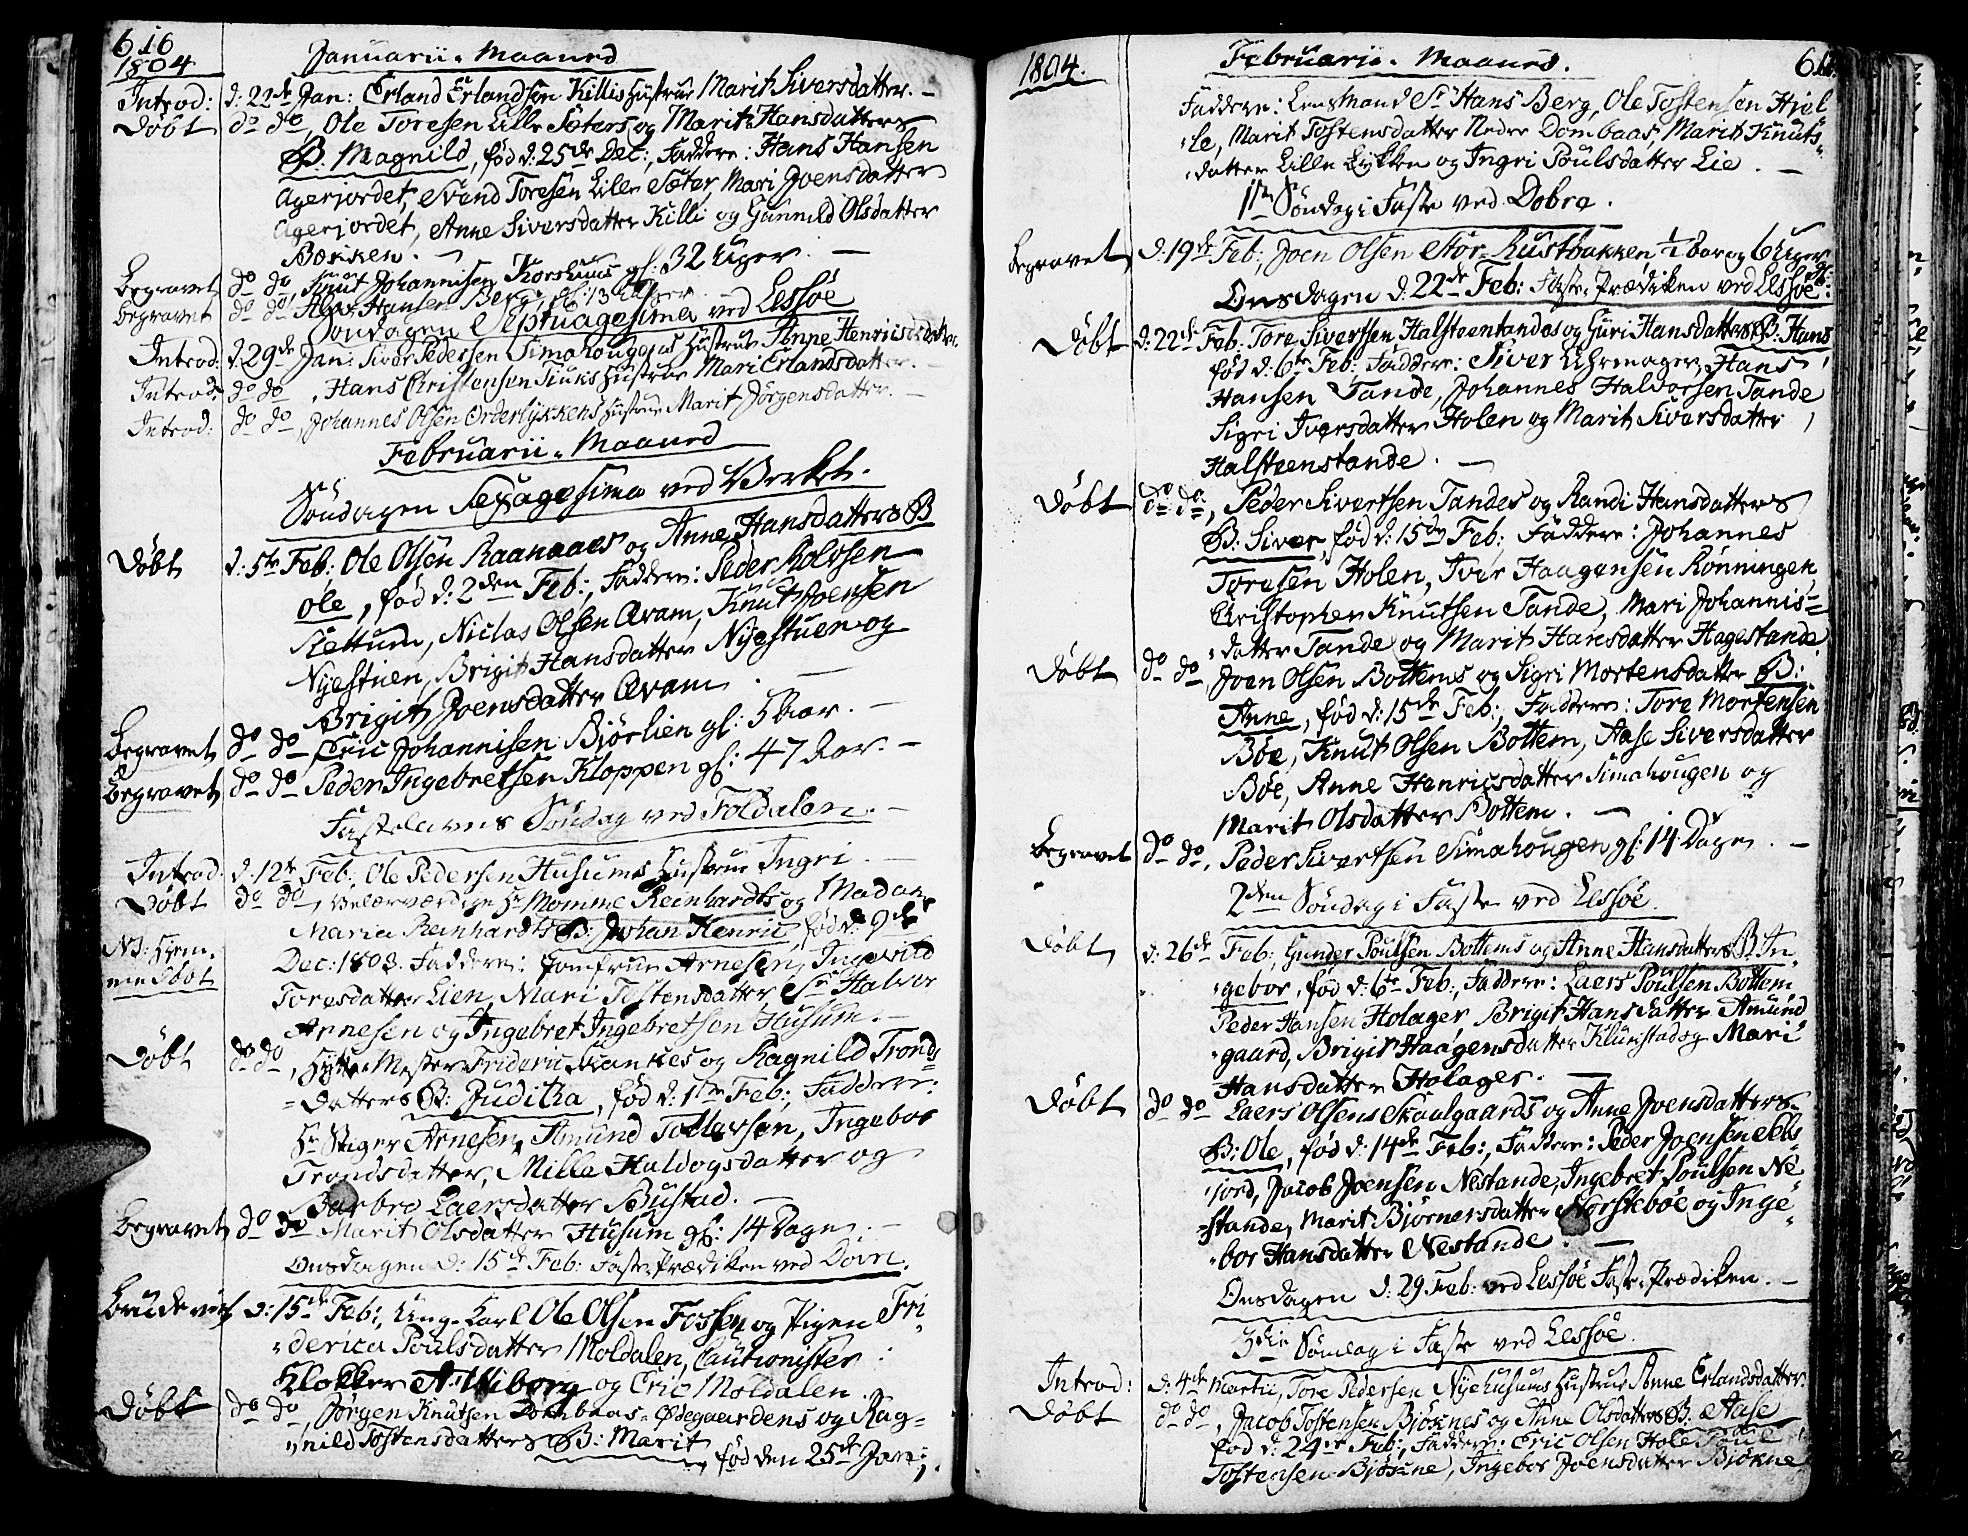 616
1804
Januarii-Maaned
Introd: d: 22de Jan: Erland Erlandsen Killis Hustrue Marit Siversdatter. -
Døbt do do, Ole Toresen Lille Sæters og Marit Hansdatters
B: Magnild, fød d: 25de Dec:, Faddere: Hans Hansen
Agerjordet, Svend Toresen Lille Sæter, Mari Joensdatter
Agerjordet, Anne Siversdatter Killi og Gunnild Olsdatter
Bækken. -
Begravet do do Knut Johannisen Korshuus gl: 32 Uger. -
Begravet do do Hans Hansen Berg, gl: 13 Uger.
Søndagen Septuagesima ved Lessøe
Introd: d: 29de Jan: Siver Pedersen Simahougens Hustrue Anne Henricsdatter.
Introd: do do, Hans Christensen Hustrue Mari Erlandsdatter. -
Introd: do do, Johannes Olsen Hustrue Marit Jørgensdatter. -
Februarii-Maaned
Søndagen Sexagesima ved Verket.
Døbt d: 5te Feb: Ole Olsen Raanaaes og Anne Hansdatters B
Ole, fød d: 2den Feb:, Faddere: Peder Rolvsen
Slettum, Niclas Olsen Avam, Knut Joensen
Nyestuen, Brigit Hansdatter Nyestuen og
Brigit Joensdatter Avam. -
Begravet do do Eric Johannisen Bjørlien gl: 5 Aar. -
Begravet do do Peder Ingebretsen Kloppen gl: 47 Aar. -
Fastelavens Søndag ved Foldalen. -
Introd: d: 12te Feb: Ole Pedersen Husums Hustrue Ingri. -
Døbt do do, Velærværdige Hr Momme Reinhardts og Madame
Maria Reinhardts B: Johan Henric fød d: 9de
NB: Hjem-
me døbt
Dec: 1803. Faddere: Jomfrue Arnesen, Ingevild
Toresdatter Lien, Mari Tostensdatter, Sr Halvor
Arnesen og Ingebret Ingebretsen Husum. -
Døbt do do, Hytte Mester Frideric Skankes og Ragnild Tronds
=datters B: Juditha, fød d: 1ste Feb:, Faddere:
Hr Stiger Arnesen, Amund Tollevsen, Ingebor
Trondsdatter, Mille Haldogsdatter og
Barbro Laersdatter Bustad. -
Begravet do do Marit Olsdatter Husum gl: 14 Dage. -
Onsdagen d: 15de Feb: Faste-Prædiken ved Dovre.
Brudeviet d: 15de Feb:, Ung-Karl Ole Olsen Fossen og Pigen Fri-
=derica Poulsdatter Moldalen, Cautionister:
Klokker A. Wiborg og Eric Moldalen.
Døbt do do, Jørgen Knutsen Dombaas-Ødegaardens og Rag-
=nild Tostensdatters B: Marit, fød den 25de Jan:,
1804. Februarii-Maaned. 61
Faddere: Lensmand Sr Hans Berg, Ole Tostensen Hjel-
=le, Marit Tostensdatter Nedre Dombaas, Marit Knuts-
=datter Lille Lykken og Ingri Poulsdatter Lie. -
1ste Søndag i Faste ved Dobre.
Begravet d: 19de Feb:, Joen Olsen Stor-Rustbakken, 1/2 Aar og 6 Uger gl:
Onsdagen d: 22de Feb: Faste-Prædiken ved Lessøe.
Døbt d: 22de Feb: Tore Siverssen Halsteenstandes og Guri Hansdatters B: Hans
fød d: 6te Feb: Faddere: Siver Uhrmager, Hans
Hansen Tande, Johannes Haldorsen Tande
Sigri Iversdatter Holen og Marit Siversdatter
Halsteenstande. -
Døbt do do, Peder Sivertsen Tandes og Randi Hansdatters
B: Siver, fød d: 15de Feb: Faddere: Johannes
Toresen Holen, Iver Haagensen Rønningen,
Christopher Knutsen Tande, Mari Johannis-
=datter Tande og Marit Hansdatter Hagestande
Døbt do do Joen Olsen Bottems og Sigri Mortensdatter B:
Anne, fød d: 15de Feb:, Faddere: Tore Mortensen
Bøe, Knut Olsen Bottem, Aase Siversdatter
Bøe, Anne Henricsdatter Simahougen og
Marit Olsdatter Bottem. -
Begravet do do, Peder Sivertsen Simahougen gl: 14 Dage. -
2den Søndag i Faste ved Lessøe.
Døbt d: 26de Feb:, Gunder Poulsen Bottems og Anne Hansdatters B: In-
=gebor, fød d: 6te Feb:, Faddere: Laers Poulsen Bottem
Peder Hansen Holager, Brigit Hansdatter Amund
=gaard, Brigit Haagensdatter Klunstad og Mari
Hansdatter Holager. -
Døbt do do Laers Olsens Skaalgaards og Anne Joensdatters
B: Ole, fød d: 14de Feb:, Faddere: Peder Joensen
=jord, Jacob Joensen Nestande, Ingebret Poulsen Ne-
=stande, Marit Bjørnersdatter Norstebøe og Inge-
=bor Hansdatter Nestande. -
Onsdagen d: 29 Feb: ved Lessøe Faste-Prædiken. -
3die Søndag i Faste ved Lessøe.
Introd: d: 4de Martii, Tore Pedersen Nyehusums Hustrue Anne Erlandsdatter.
Døbt do do, Jacob Tostensen Bjøknes og Anne Olsdatters B: Aase
fød d: 24de Feb:, Faddere: Eric Olsen Hole, Poul
Tostensen Bjøkne, Ingebor Joensdatter Bjøkne